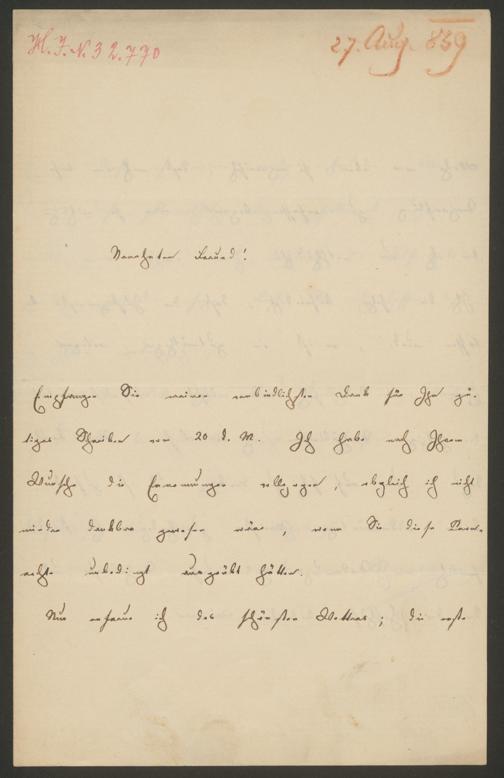 H. I. N. 32.770
27. Aug. 859
Verehrter Freund!
Empfangen Sie meinen verbindlichsten Dank für Ihr gü-
tiges Schreiben vom 20 d. M. Ich habe nach Ihrem
Wunsche die Ernennungen vollzogen, obgleich ich nicht
minder dankbar gewesen wäre, wenn Sie diese
unbedingt ausgeübt hätten.
Nun erfreue ich des schönsten Wetters; die erste